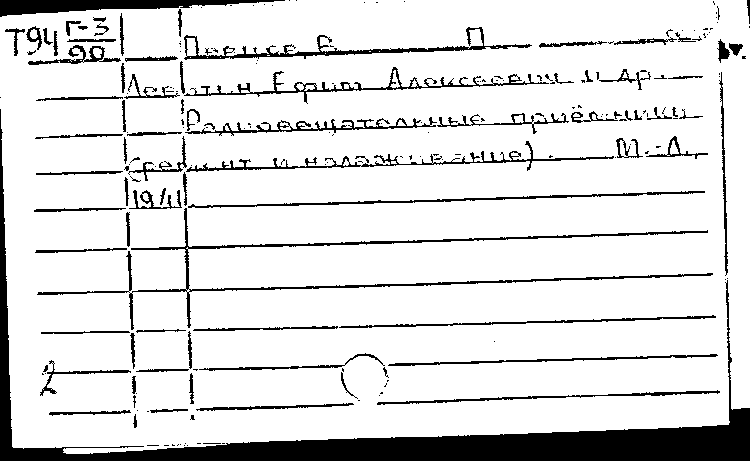 Т94 Г-3 П
90
Левитин, Ефим Алексеевич и др.
Радиовещательные приёмники
(ремонт и налаживание). М.-Л.,
1941
2